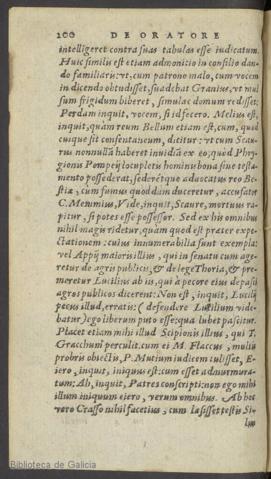 200 DE ORATORE
intelligeret contra suas tabulas esse iudicatum.
Huic similis est etiam admonitio in consilio dan-
do familiaris: vt, cum patrono malo, cum vocem
in dicendo obtudisset, suadebat Granius, vt mul
sum frigidum biberet, simulac domum redisset:
Perdam inquit, vocem, si id fecero. Melius est,
inquit, quàm reum Bellum etiam est, cum, quod
cuique sit consentaneum, dicitur: vt cum Scau-
rus nonnullā haberet inuidiā ex eo, quòd Phry-
gionis Pompeij locupletis hominis bona sine testa-
mento possederat, sederétque aduocatus reo Be-
stiæ, cum funus quoddā duceretur, accusator
C. Memmius, Vide, inquit, Scaure, mortuus ra-
pitur, si potes esse possessor. Sed ex his omnibus
nihil magis ridetur, quàm quod est præter expe-
ctationem: cuius innumerabilia sunt exempla:
vel Appij maioris illius, qui in senatu cum age-
retur de agris publicis, & de lege Thoria, & pre-
meretur Lucilius ab iis, qui à pecore eius depasci
agros publicos dicerent: Non est, inquit, Lucilij
pecus illud, erratis: (defendere Lucilium vide-
batur) ego liberum puto esse: qua lubet pascitur.
Placet etiam mihi illud Scipionis illius, qui T.
Gracchum perculit. cum ei M. Flaccus, multis
probris obiectis, P. Mutium iudicem tulisset, E-
iero, inquit, iniquus est: cum esset admurmura-
tum; Ah, inquit, Patres conscripti: non ego mihi
illum iniquum eiero, verum omnibus. Ab hoc
vero Crasso nihil facetius, cum læsisset testis Si-
lus
Biblioteca de Galicia